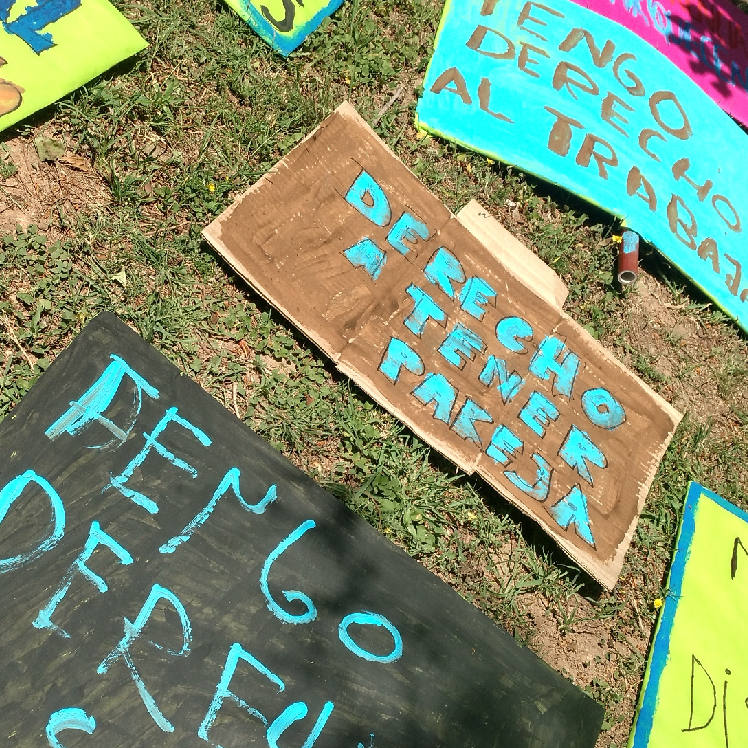 TENGO
DERECHO
AL TRABAJ
DERECHO
A TENER
PAREJA
TENGO
DEREC
N
Dis